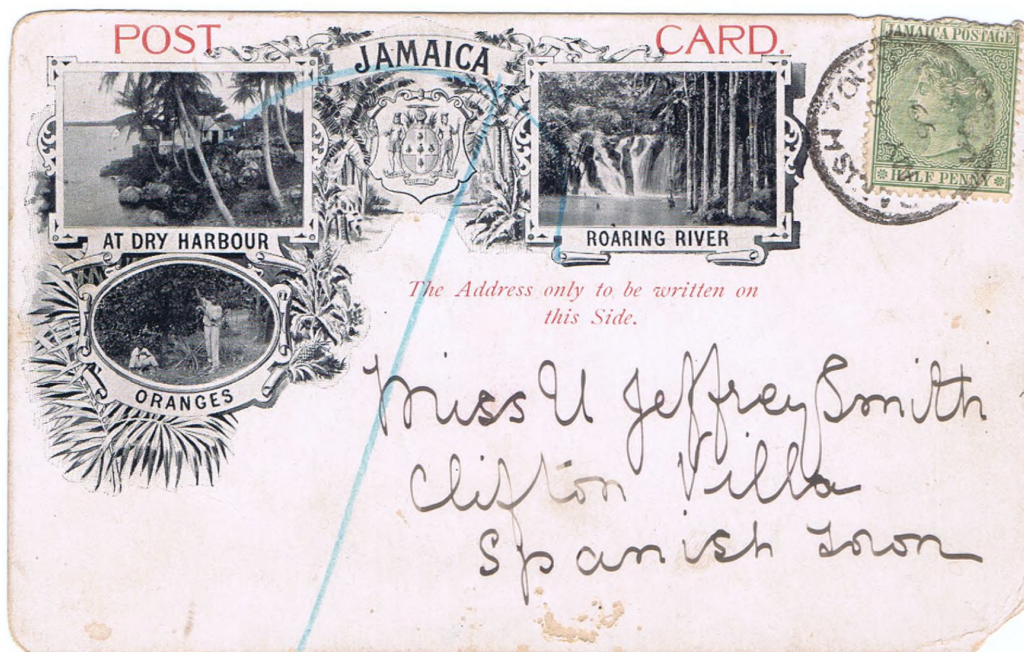 POST CARD.
JAMAICA
JAMAICA POSTAGE
HALF PENNY
AT DRY HARBOUR
ROARING RIVER
ORANGES
The Address only to be written on
this Side.
Miss U Jeffrey Smith
Clifton Villa
Spanish Town